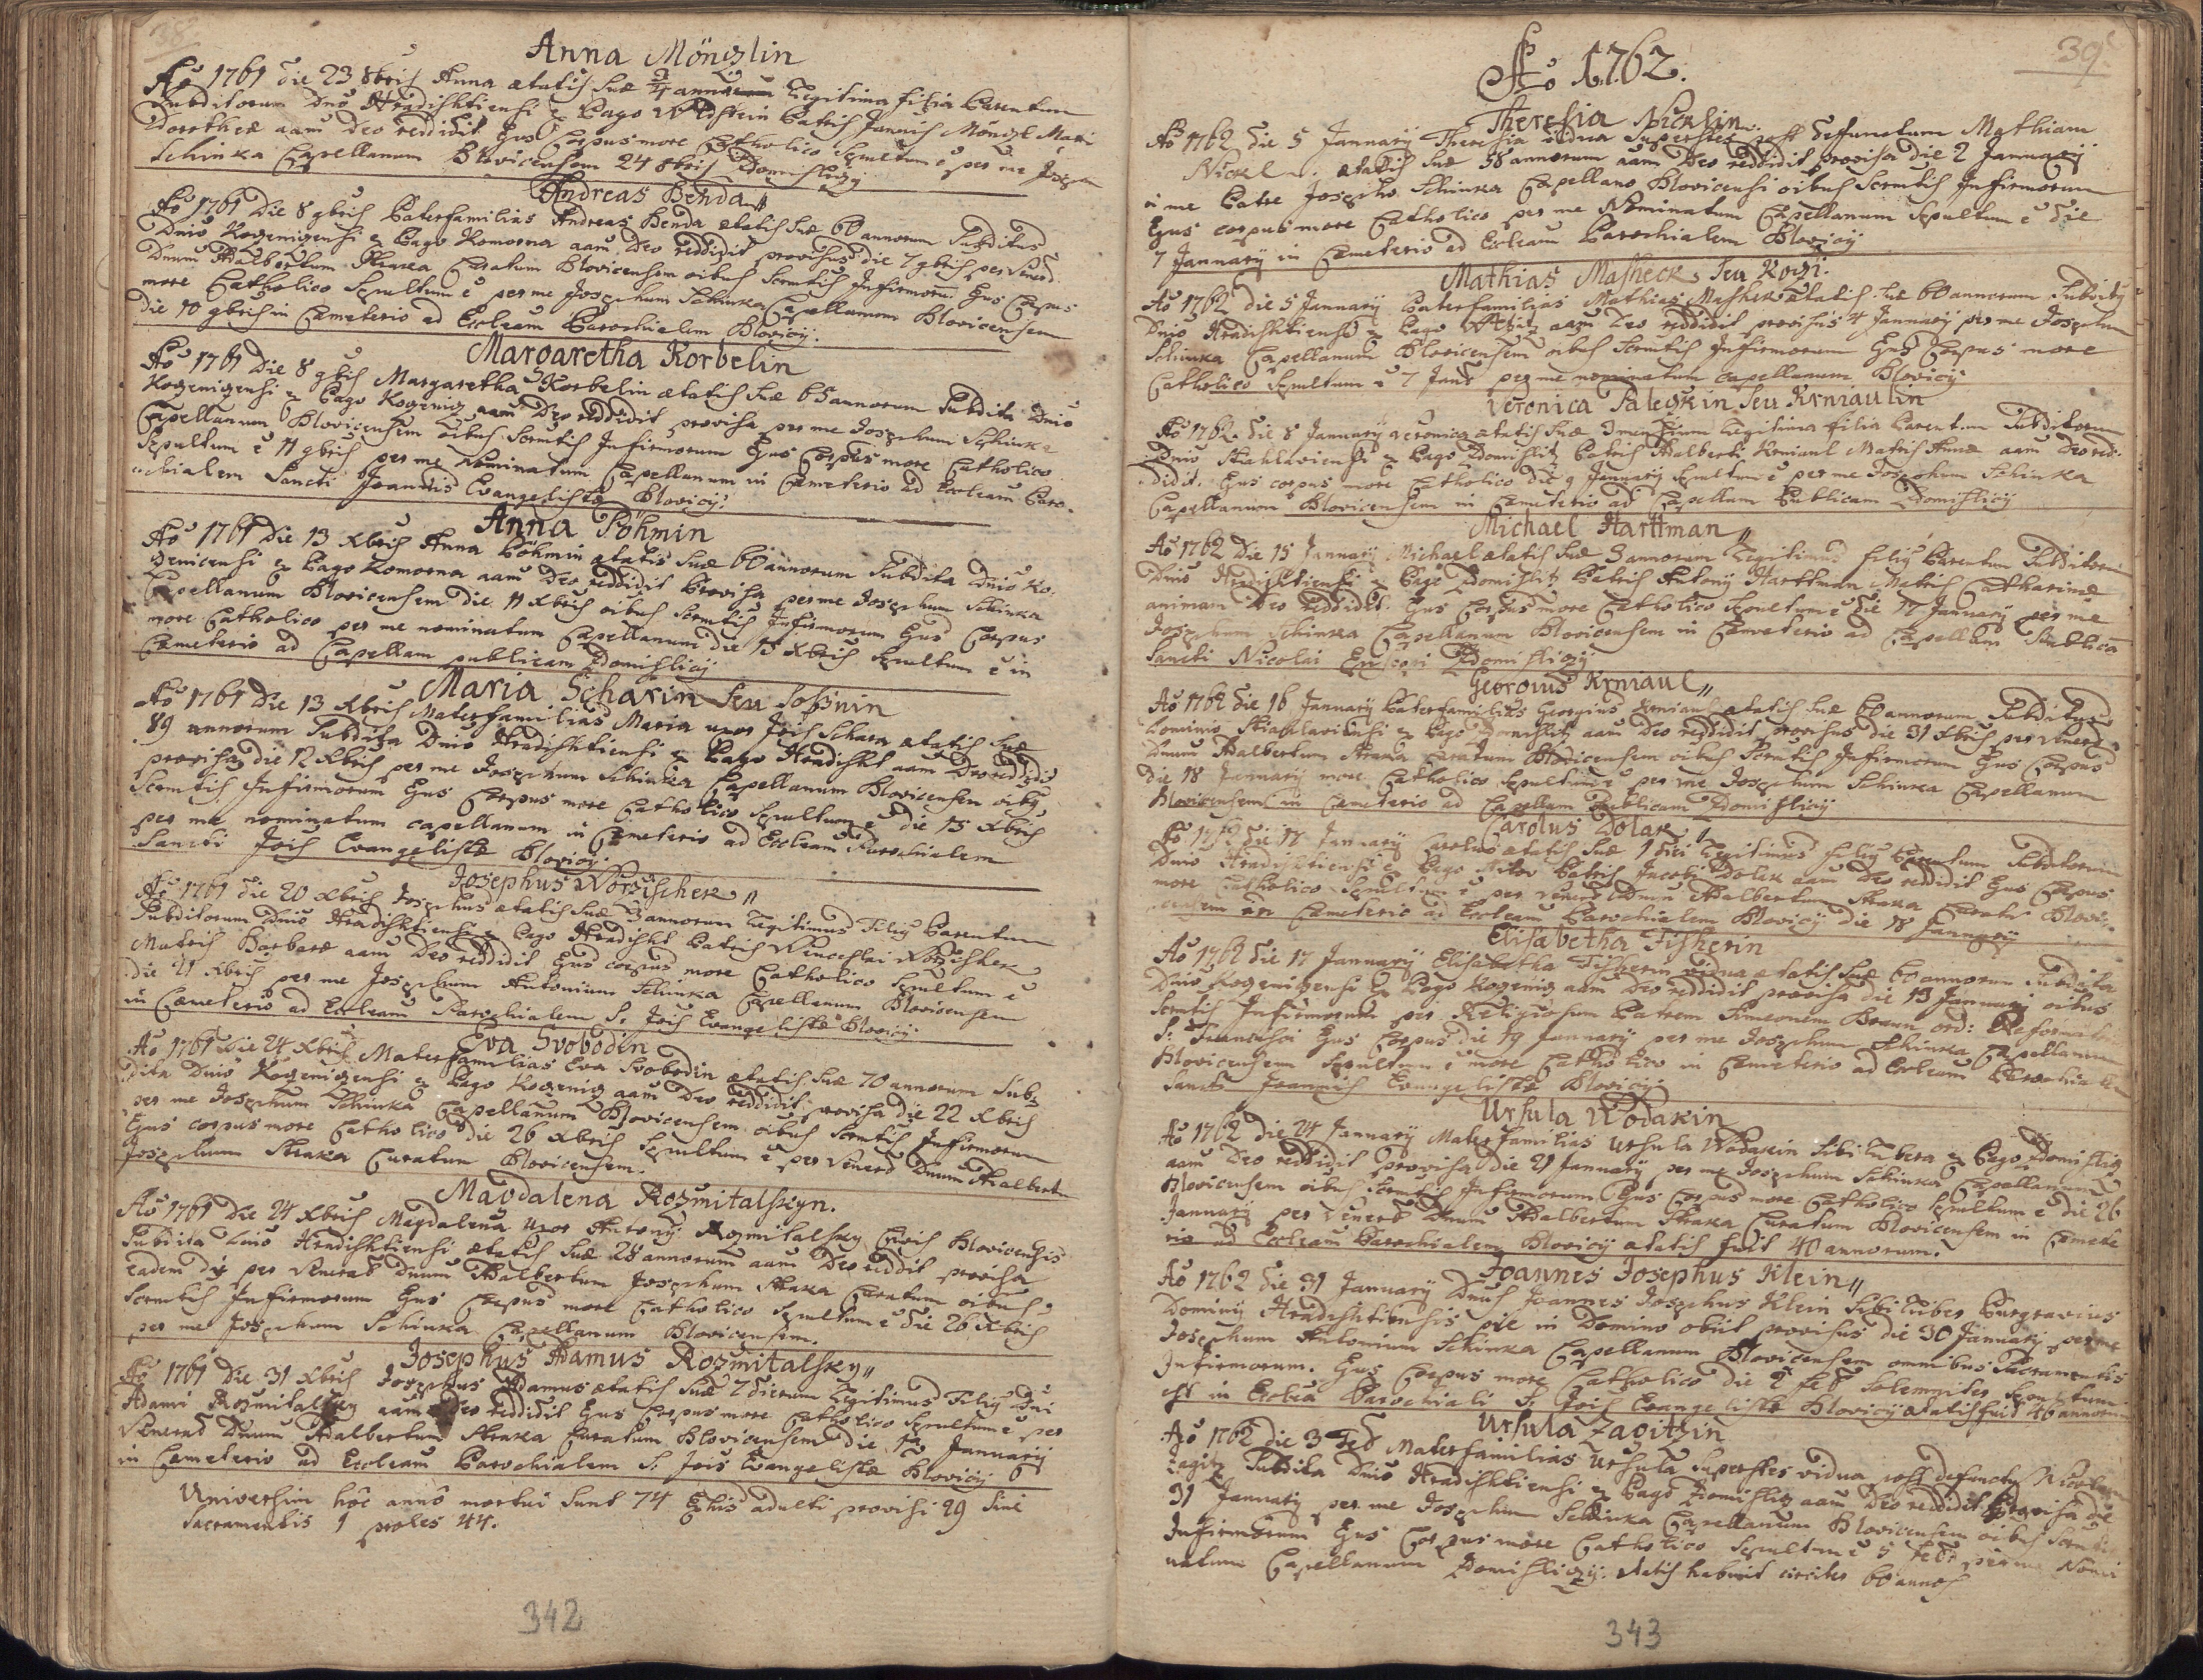 38
Anna Mönczlin
Aō 1761 die 23 8bris Anna ætatis suæ annorum Legitima filia Parentum
Subditorum Dnio Hradishtiensi ex Pago Wildstein Patris Jannis Mönczl Matris
Dorotheæ aam Deo reddidit Ejus Corpus more Catholico Sepultum ē per me Joseph
Schinka Capellanum Blovicensem 24 8bris Zdomisliczy
Andreas Benda
Aō 1761 Die 8 9bris Paterfamilias Andreas Benda ætatis suæ 60 annorum Subditus
Dnio Kogenigensi ex Pago Komorna aam Deo reddidit provisus die 7 9bris per Venerd
Dnum Adalbertum Straka Curatum Blovicensem oibus Scrmtis Infirmorū. Ejus Corpus
more Catholico Sepultum ē per me Josephum Schinka Capellanum Blovicensem
die 10 9bris in Cæmeterio ad Eccleam Parochialem Blovicij.
Margaretha Korbelin
Aō 1761 Die 8 9bris Margaretha Korbelin ætatis suæ 65 annorum Subdita Dnio
Kogenigensi ex Pago Kogenig aam Deo reddidit provisa per me Josephum Schinka
Capellanum Blovicensem oibus Scrmtis Infirmorum Ejus Corpus more Catholico
Sepultum ē 11 9bris per me Nominatum Capellanum in Cæmeterio ad Eccleam Paro-
chialem Sancti Joannis Evangelistæ Blovicij.
Anna Pöhmin
Aō 1761 Die 13 Xbris Anna Pöhmin ætatis suæ 60 annorum Subdita Dnio Ko-
zenicensi ex Pago Komorna aam Deo reddidit Provisa per me Josephum Schinka
Capellanum Blovicensem die 11 Xbris oibus Scrmtis Infirmorum Ejus Corpus
more Catholico per me nominatum Capellanum die 15 Xbris Sepultum ē in
Cæmeterio ad Capellam publicam Zdomislicij
Maria Scharin seu Soßnin
Aō 1761 Die 13 Xbris Materfamilias Maria uxor Jois Scharn ætatis suæ
89 annorum Subdita Dnio Hradishtiensi ex Pago Hradisht aam Deo reddidit
provisa die 12 Xbris per me Josephum Schinka Capellanum Blovicensem oibus
Scrmtis Infirmorum Ejus Corpus more Catholico Sepultum ē die 15 Xbris
per me nominatum capellanum in Cæmeterio ad Eccleam Parochialem
Sancti Jois Evangelistæ Blovicij.
Josephus Worzischek
Aō 1761 die 20 Xbris Josephus ætatis suæ 3 annorum Legitimus Filius Parentum
Subditorum Dnio Hradishtiensi ex Pago Hradisht Patris Wenceslai Worzishek
Matris Barbaræ aam Deo reddidit Ejus corpus more Catholico Sepultum ē
die 21 Xbris per me Josephum Antonium Schinka Capellanum Blovicensem
in Cæmeterio ad Eccleam Parochialem S. Jois Evangelistæ Blovicij
Eva Svobodin
Aō 1761 Die 24 Xbris Materfamilias Eva Svobodin ætatis suæ 70 annorum Sub-
dita Dnio Kogenigensi ex Pago Kogenig aam Deo reddidit provisa die 22 Xbris
per me Josephum Schinka Capellanum Blovicensem oibus Scrmtis Infirmorum
Ejus corpus more Catholico die 26 Xbris Sepultum ē per Venerd Dnum Adalbertum
Josephum Straka Curatum Blovicensem.
Magdalena Rozmitalskyn.
Aō 1761 Die 24 Xbris Magdalena uxor Antonij Rozmitalsky Civis Blovicensis
Subdita Dnio Hradishtiensi ætatis suæ 28 annorum aam Deo reddit provisa
eadem die per Venerad Dnum Adalbertum Josephum Straka Curatum oibus
Scrmtis Infirmorum Ejus Corpus more Catholico Sepultum ē die 26 Xbris
per me Josephum Schinka Capellanum Blovicensem.
Josephus Adamus Rozmitalsky
Aō 1761 Die 31 Xbris Josephus Adamus ætatis suæ 7 dierum Legitimus Filius Dni
Adami Rozmitalsky aam Deo reddidit Ejus Corpus more Catholico Sepultum ē per
Venerad Dnum Adalbertum Straka Curatum Blovicensem die Januarij
in Cæmeterio ad Eccleam Parochialem S. Jois Evangelistæ Blovicij
Universim hōc annō mortui sunt 74 Ex his adulti provisi 29 sine
Sacramentis 1 proles 44.
342
39
Aō 1762.
Theresia Nicklin
Aō 1762 die 5 Januarij Theresia vidua superstes post defunctum Mathiam
Nickl ætatis suæ 58 annorum aam Deo reddidit provisa die 2 Januarij
a me Patre Josepho Schinka Capellano Blovicensi oibus Scrmtis Infirmorum
Ejus corpus more Catholico per me Nominatum Capellanum Sepultum ē die
7 Januarij in Cæmeterio ad Eccleam Parochialem Blovicij
Mathias Masheck seu Kozi.
Aō 1762 die 5 Januarij Paterfamilias Mathias Mashek ætatis suæ 60 annorum Subditus
Dnio Hradishtiensi ex Pago aam Deo reddidit provisus 4 Januarij per me Josephum
Schinka Capellanum Blovicensem oibus Scrmtis Infirmorum Ejus Corpus more
Catholico Sepultum ē 7 Janr per me nominatum capellanum Blovicij
Veronica Paleskin seu Krniaulin
Aō 1762. die 8 Januarij Veronica ætatis suæ 3 mensium Legitima filia Parentum Subditorum
Dnio Stiahlaviensi ex Pago Zdomislitz Patris Adalberti Krniaul Matris Annæ aam Deo red-
didit. Ejus corpus more Catholico die 9 Januarij Sepultum ē per me Josephum Schinka
Capellanum Blovicensem in Cæmeterio ad Capellam Publicam Zdomislicij
Michael Harttman
Aō 1762 Die 15 Januarij Michael ætatis suæ 3 annorum Legitimus filius Parentum Subditorum
Dnio Hradishtiensi ex Pago Zdomislitz Patris Antonij Harttman Matris Catharinæ
animam Deo reddidit. Ejus Corpus more Catholico Sepultum ē die 17 Januarij per me
Josephum Schinka Capellanum Blovicensem in Cæmeterio ad Capellam Publicā
Sancti Nicolai Episcopi Zdomisliczij
Georgius Krniaul
Aō 1762 die 16 Januarij Paterfamilias Georgius Krniaul ætatis suæ 60 annorum Subditus
Dominio Stiahlaviensi ex Pago Zdomislitz aam Deo reddidit provisus die 31 Xbris per Venerd
Dnum Adalbertum Straka Curatum Blovicensem oibus Scrmtis Infirmorum Ejus Corpus
die 18 Januarij more Catholico Sepultum ē per me Josephum Schinka Capellanum
Blovicensem in Cæmeterio ad Capellam Publicam Zdomislicij
Carolus Dolak
Aō 1762 die 17 Januarij Carolus ætatis suæ 1 diei Legitimus filius Parentum Subditorum
Dnio Hradishtiensi ex Pago Patris Jacobi Dolek aam Deo reddidit Ejus Corpus
more Catholico Sepultum ē per Venerd Dnum Adalbertum Straka Curatum Blovi-
censem in Cæmeterio ad Eccleam Parochialem Blovicij die 18 Januarij
Elisabetha Fisherin
Aō 1762 die 17 Januarij Elisabetha Fisherin vidua ætatis suæ 60 annorum Subdita
Dnio Kogenigensi ex Pago Kogenig aam Deo reddidit provisa die 13 Januarij oibus
Scrmtis Infirmorum per Religiosum Patrem Simeonem Braun ord: Reformator
S. Francisci Ejus Corpus die 19 Januarij per me Josephum Schinka Capellanum
Blovicensem Sepultum ē more Catholico in Cæmeterio ad Eccleam Parochialem
Sancti Joannis Evangelistæ Blovicij
Ursula Wodakin
Aō 1762 die 24 Januarij Materfamilias Ursula Wodakin sibi Libera ex Pago Zdomislitz
aam Deo reddidit provisa die 21 Januarij per me Josephum Schinka Capellanum
Blovicensem oibus Scrmtis Infirmorum Ejus Corpus more Catholico Sepultum ē die 26
Januarij per Venerd Dnum Adalbertum Straka Curatum Blovicensem in Cæmete
rio ad Eccleam Parochialem Blovicij ætatis fuit 40 annorum.
Joannes Josephus Klein
Aō 1762 die 31 Januarij Dnus Joannes Josephus Klein sibi Liber Burgravius
Dominij Hradishtiensis pie in Domino obiit provisus die 30 Januarij per me
Josephum Antonium Schinka Capellanum Blovicensem omnibus Sacramentis
Infirmorum. Ejus Corpus more Catholico die 2 Feb Solemniter Sepultum
est in Ecclea Parochiali S. Jois Evangelistæ Blovicij ætatis fuit 46 annorum
Ursula Zagitzin
Aō 1762 die 3 Feb Materfamilias Ursula superstes vidua post defunctū Nicolaum
Zagitz Subdita Dnio Hradishtiensi ex Pago Zdomislitz aam Deo reddidit Provisa die
31 Januarij per me Josephum Schinka Capellanum Blovicensem oibus Scrmtis
Infirmorum Ejus Corpus more Catholico Sepultum ē 5 Feb per me Nomi
natum Capellanum Zdomisliczij. Ætatis habuit circiter 60 annos
343